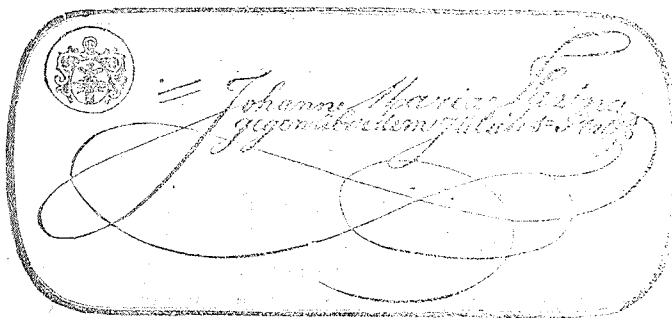 Johann Maria Farina
gegenüber dem Jülichs-Platz